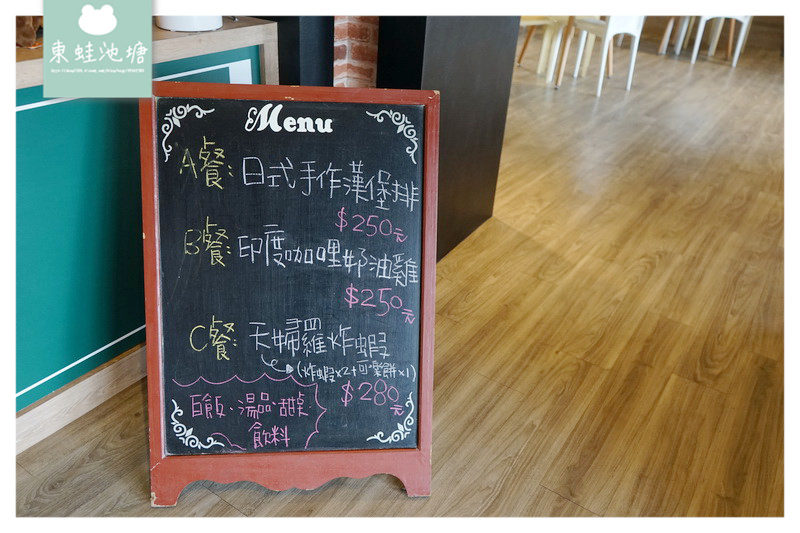 東蛙池塘
Menu
A餐:日式手作漢堡排
$250元
B餐:印度咖哩奶油雞
$250元
C餐:天婦羅炸蝦
(炸蝦x2+可樂餅x1)
$280元
白飯、湯品、甜点
飲料